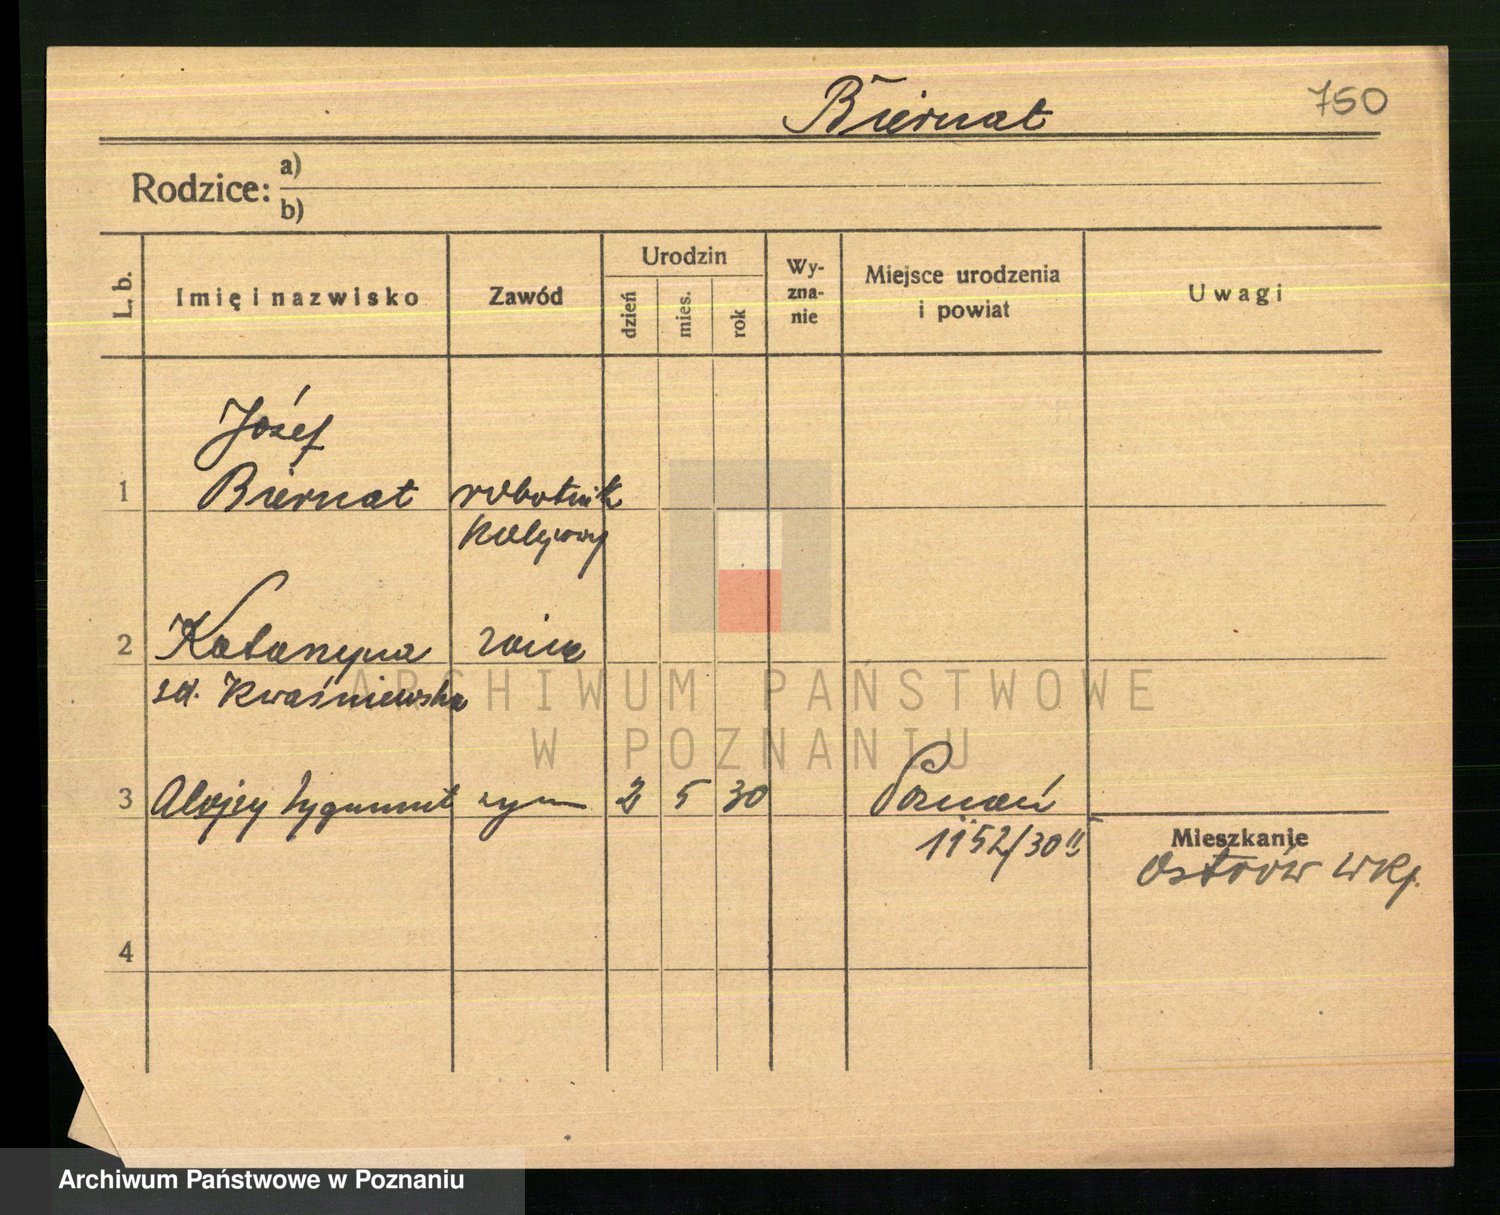 Biernat
750
Rodzice:
a)
b)
L. b.
Imię i nazwisko
Zawód
Urodzin
dzień
mies.
rok
Wy-
zna-
nie
Miejsce urodzenia
i powiat
Uwagi
Józef
1 Biernat robotnik
kolejowy
2 Katarzyna żona
zd. Kwaśniewska
ARCHIWUM PAŃSTWOWE
W POZNANIU
3 Alojzy Zygmunt syn 2 5 30 Poznań
1152/30 II
Mieszkanie
Ostrów Wkp.
4
Archiwum Państwowe w Poznaniu